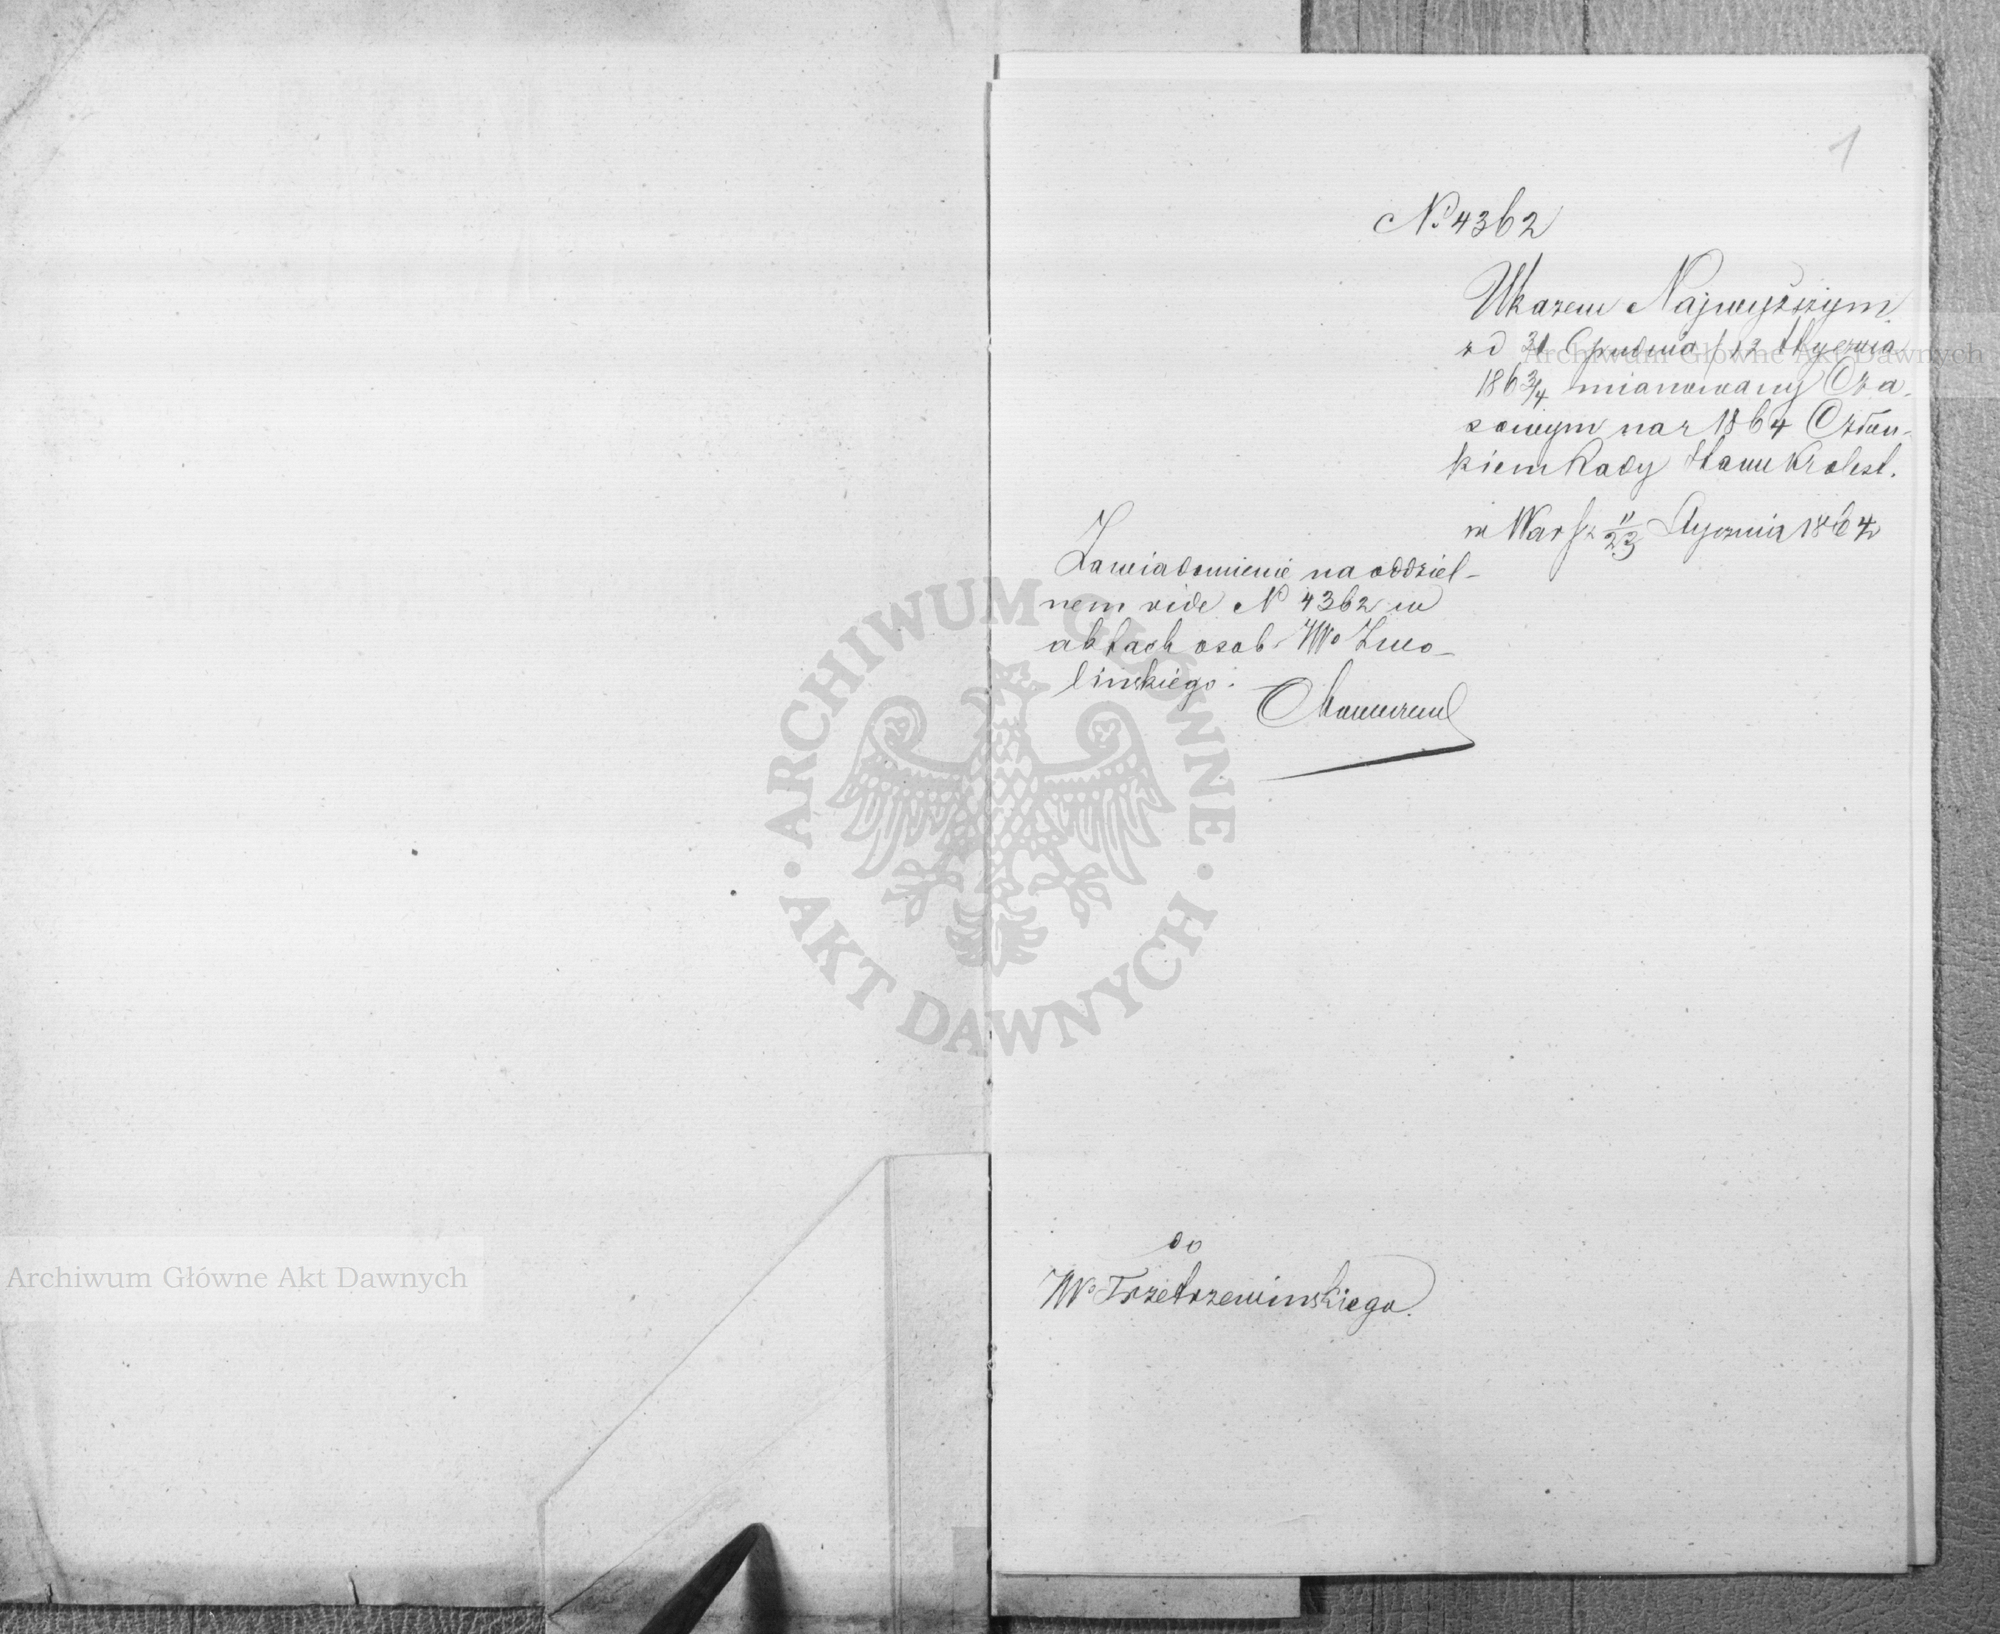 1
№ 4362
Ukazem Najwyższym
z d 31 Grudnia / 12 Stycznia
1863/4 mianowany Cza-
sowym na r 1864 Człon-
kiem Rady Stanu Królest.
w Warsz 11/23 Stycznia 1864
Zawiadomienie na oddziel-
nem vide № 4362 w
aktach osob. JWo Zwo-
lińskiego.
do
JWo Trzetrzewinskiego.
ARCHIWUM GŁÓWNE AKT DAWNYCH
Archiwum Główne Akt Dawnych
Archiwum Główne Akt Dawnych